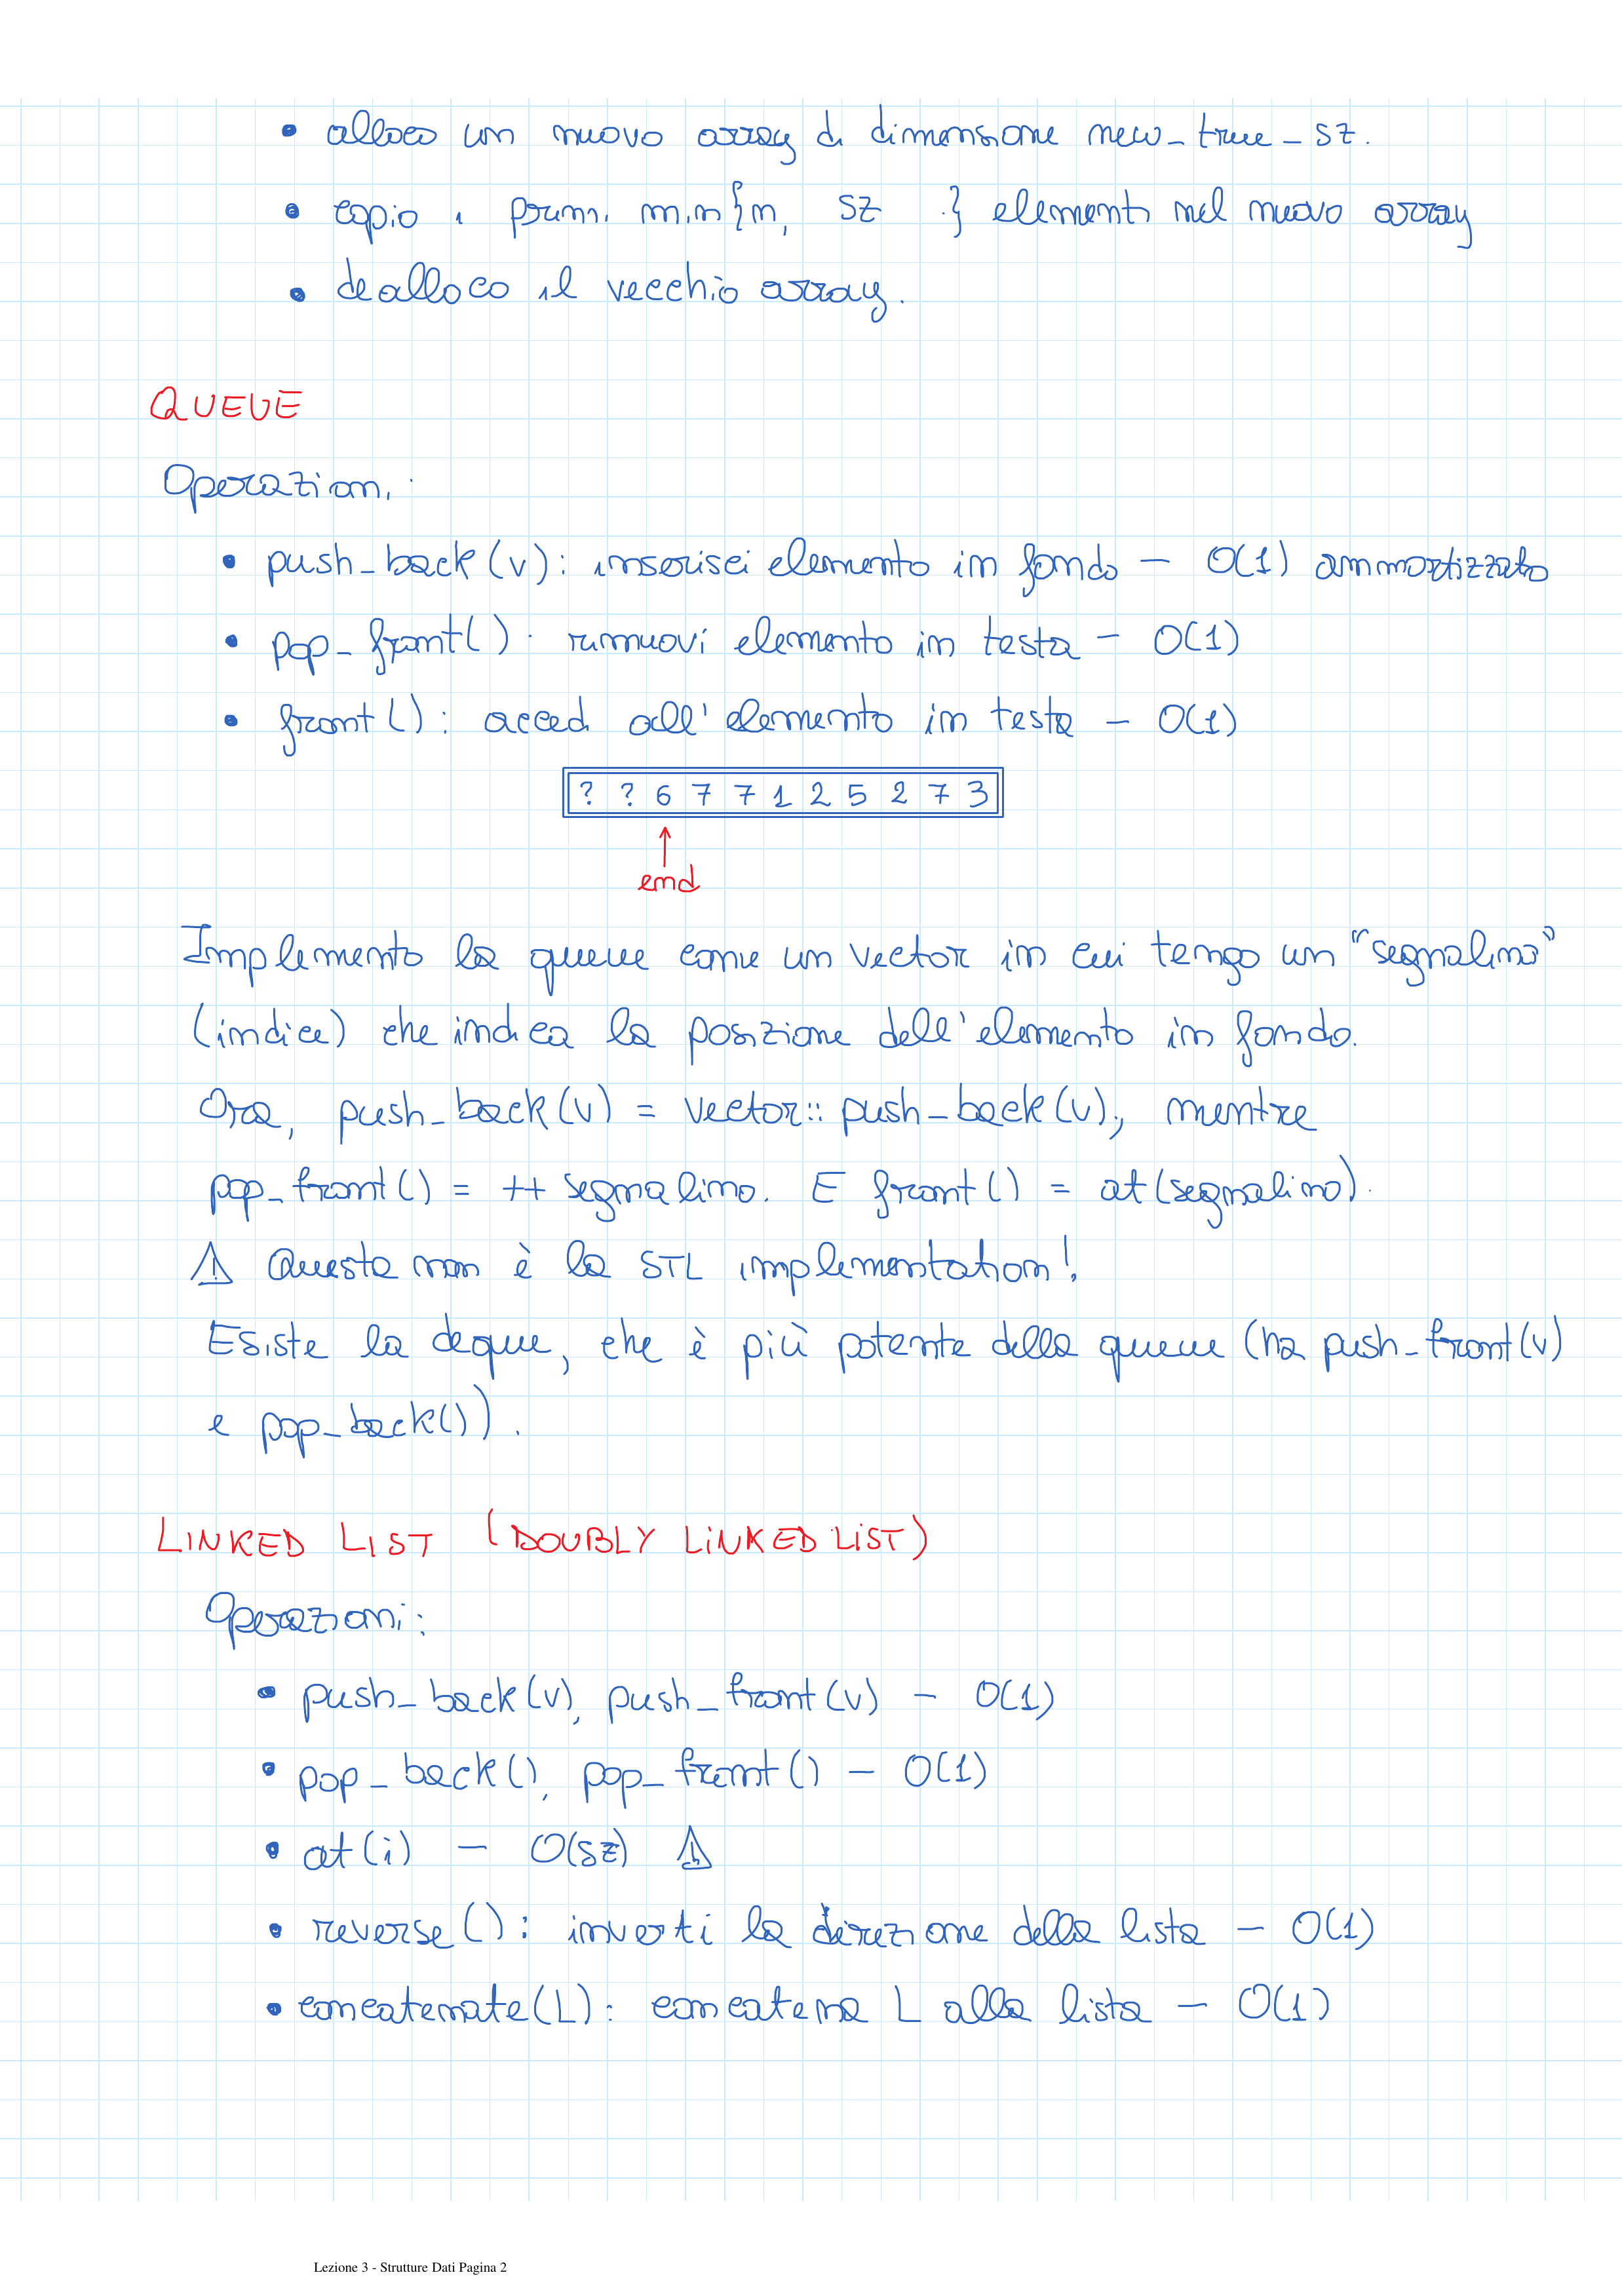 • alloco un nuovo array di dimensione new_true_sz.
• copio i primi min{n, sz } elementi nel nuovo array
• dealloco il vecchio array.
QUEUE
Operazioni:
• push_back(v): inserisci elemento in fondo - O(1) ammortizzato
• pop_front(): rimuovi elemento in testa - O(1)
• front(): accedi all'elemento in testa - O(1)
? ? 6 7 7 1 2 5 2 7 3
end
Implemento la queue come un vector in cui tengo un "segnalino"
(indice) che indica la posizione dell'elemento in fondo.
Ora, push_back(v) = vector::push_back(v);, mentre
pop_front() = ++segnalino. E front() = at(segnalino).
⚠ Questa non è la STL implementation!
Esiste la deque, che è più potente della queue (ha push_front(v)
e pop_back()).
LINKED LIST (DOUBLY LINKED LIST)
Operazioni:
• push_back(v), push_front(v) - O(1)
• pop_back(), pop_front() - O(1)
• at(i) - O(sz) ⚠
• reverse(): inverti la direzione della lista - O(1)
• concatenate(L): concatena L alla lista - O(1)
Lezione 3 - Strutture Dati Pagina 2